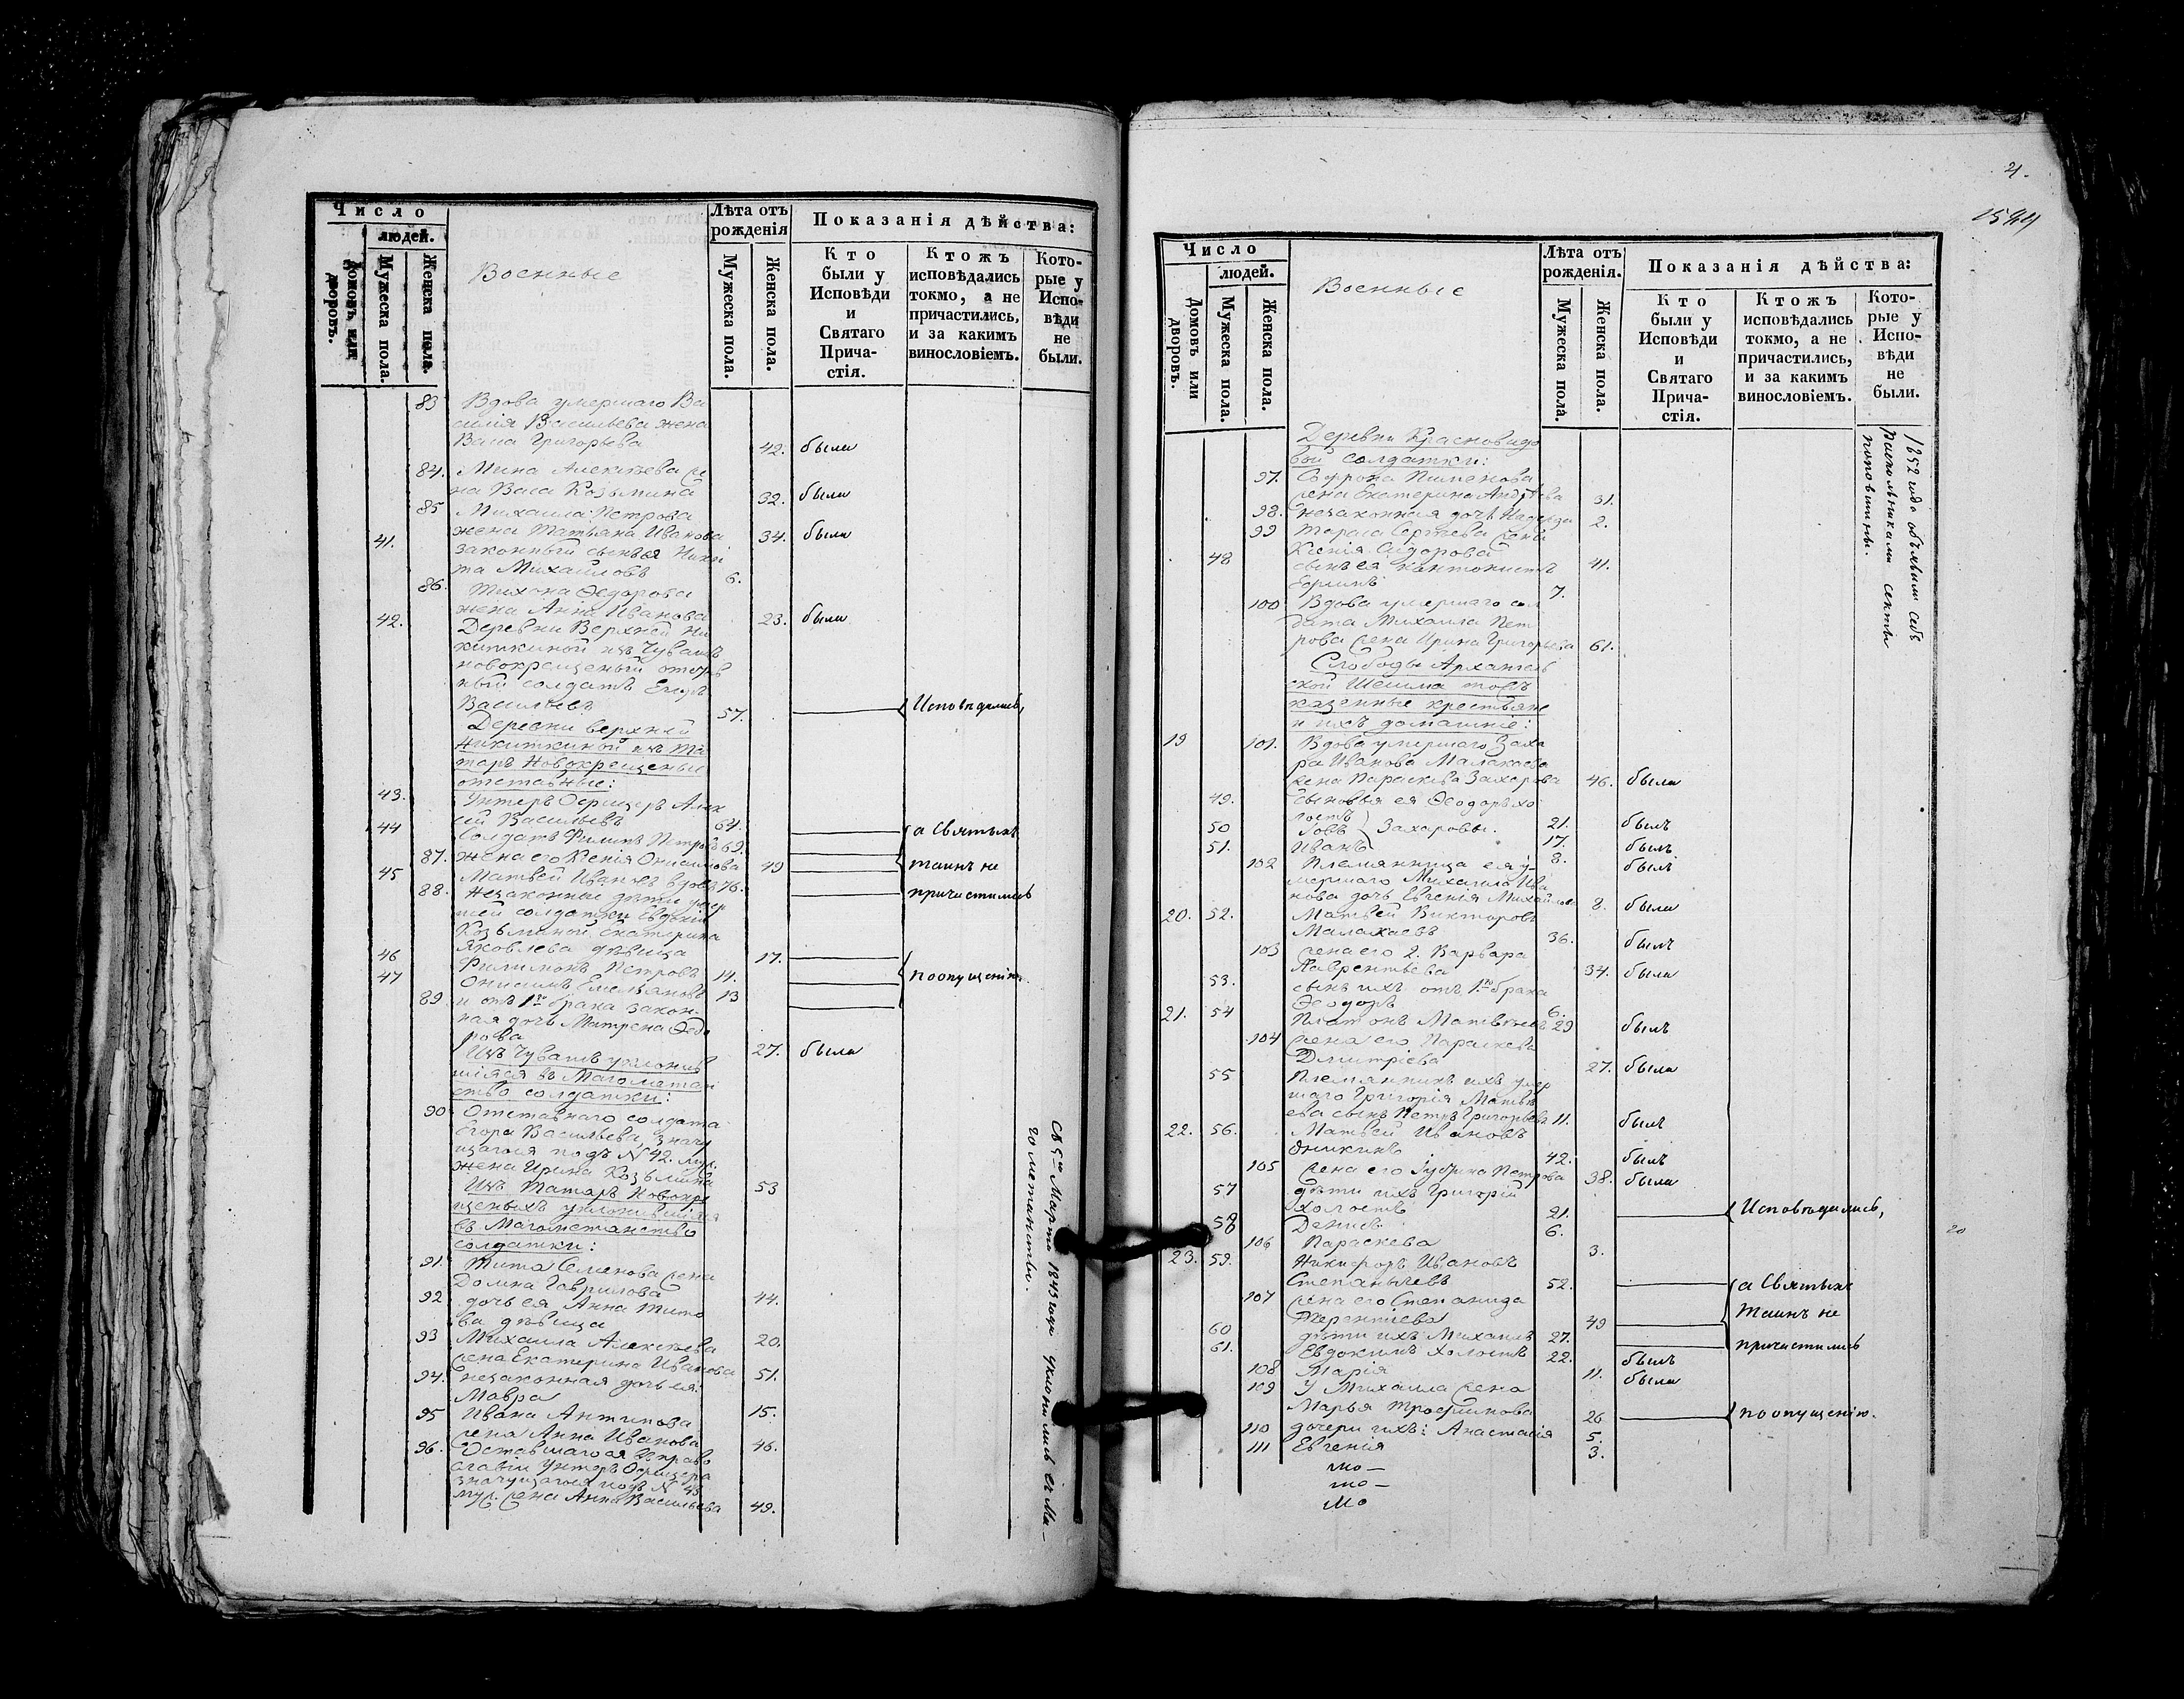 Число
людей.
Домовъ или дворовъ.
Мужеска пола.
Женска пола.
Военные
Лѣта отъ рожденія
Мужеска пола.
Женска пола.
Показанія дѣйства:
Кто были у Исповѣди и Святаго Прича-стія.
Ктожъ исповѣдались токмо, а не причастились, и за какимъ винословіемъ.
Кото-рые у Испо-вѣди не были.
83 Вдова умершаго Ва
силія Васильева жена
Васса Григорьева 42. была
84.
на Васса Козьмина 32. была
85 Михаила Петрова
жена Татьяна Иванова 34. была
41. законный сынъ ея Ники
та Михайловъ 6.
86. Тихона Ѳедорова
жена Анна Иванова 23. была
42. Деревни Верхней Ни
киткиной изъ Чувашъ
новокрещеный отстав
ный солдатъ Егоръ
Васильевъ 57. Исповѣдались,
Деревни верхней
Никиткиной изъ Та
таръ Новокрещеные
отставные:
43. Унтеръ Офицеръ Алек
сѣй Васильевъ 64.
44 Солдатъ Филипъ Петровъ 69. а Святыхъ
87. жена его Ксенія Онисимова 49 Таинъ не
45 Матвей Ивановъ вдовъ 76.
88. Незаконные дѣти умер причастились
шей солдатки Евдокіи
Козьминой, Екатерина
Яковлева дѣвица 17.
46 Филимонъ Петровъ 14. по опущенію.
47 Онисимъ Емельяновъ 13
89 и отъ 1го брака закон-
ная дочь Матрена Ѳедо
рова 27. была
Изъ Чувашъ уклонив
шіяся въ Магометан
ство солдатки:
90 Отставнаго солдата
Егора Васильева, значу
щагося подъ № 42. муж.
жена Ирина Козьмина 53
Изъ Татаръ Новокре
щеныхъ уклонившіяся
въ Магометанство
солдатки:
91. Тита Семенова жена
Домна Гаврилова 44.
92 дочь ея Анна Тито
ва дѣвица 20.
93 Михаила Алексѣева
жена Екатерина Иванова 51.
94. незаконная дочь ея
Мавра 15.
95 Ивана Антипова
жена Анна Иванова 46.
96. Оставшагося въ право
славіи Унтеръ Офицера
значущагося подъ № 43
муж. жена Анна Васильева 49.
Марта 1843 года уклонились въ Ма-
гометанство.
4.
1544
Число
людей.
Домовъ или дворовъ.
Мужеска пола.
Женска пола.
Военные
Лѣта отъ рожденія.
Мужеска пола.
Женска пола.
Показанія дѣйства:
Кто были у Исповѣди и Святаго Прича-стія.
Ктожъ исповѣдались токмо, а не причастились, и за какимъ винословіемъ.
Кото-рые у Испо-вѣди не были.
Деревни Красновидо
вой солдатки:
97. Софрона Пименова
жена Екатерина Андреева 31.
98. незаконная дочь Надежда 2.
99 Тараса Сергѣева жена
Ксенія Сидорова 41.
48 сынъ ея кантонистъ
7.
100 Вдова умершаго сол
дата Михаила Пет
рова жена Ирина Григорьева 61.
Слободы Архангель
ской Шешма тожъ
казенные крестьяне
и ихъ домашніе:
19 101. Вдова умершаго Заха
ра Иванова Малахаева
жена Параскева Захарова 46. была
49. сыновья ея Ѳеодоръ хо
лостъ 21. былъ
50 Іовъ Захаровы. 17. былъ
51. Иванъ 8. былъ
102 Племянница ея у-
мершаго Михаила Ива
нова дочь Евгенія Михайлова 8. была
20. 52. Матвей Викторовъ
Малахаевъ 36. былъ
103 жена его 2. Варвара
Лаврентьева 34. была
53. сынъ ихъ отъ 1го брака
Ѳеодоръ 6.
21. 54 Платонъ Матвѣевъ 29 былъ
104 жена его Параскева
Дмитріева 27. была
55 Племянникъ ихъ умер
шаго Григорія Матвѣ
ева сынъ Петръ Григорьевъ 11. былъ
22. 56. Матвей Ивановъ
Аникинъ 42. былъ
105 жена его Петрова 38. была
57 дѣти ихъ Григорій
холостъ 21. Исповѣдались,
58 Денисъ 6.
106 Параскева 3.
23. 59. Никифоръ Ивановъ
Степанычевъ 52. а Святыхъ
107 жена его Степанида
Терентьева 49 Таинъ не
60 дѣти ихъ Михаилъ 27. причастились
61. Евдокимъ холостъ 22. былъ
108 Марія 11. была
109 У Михаила жена
Марья Трофимова 26 по опущенію.
110 дочери ихъ: Анастасія 5.
111 Евгенія 3.
то —
то —
то
1852 года объявили себя
раскольниками секты
поповщины.
20